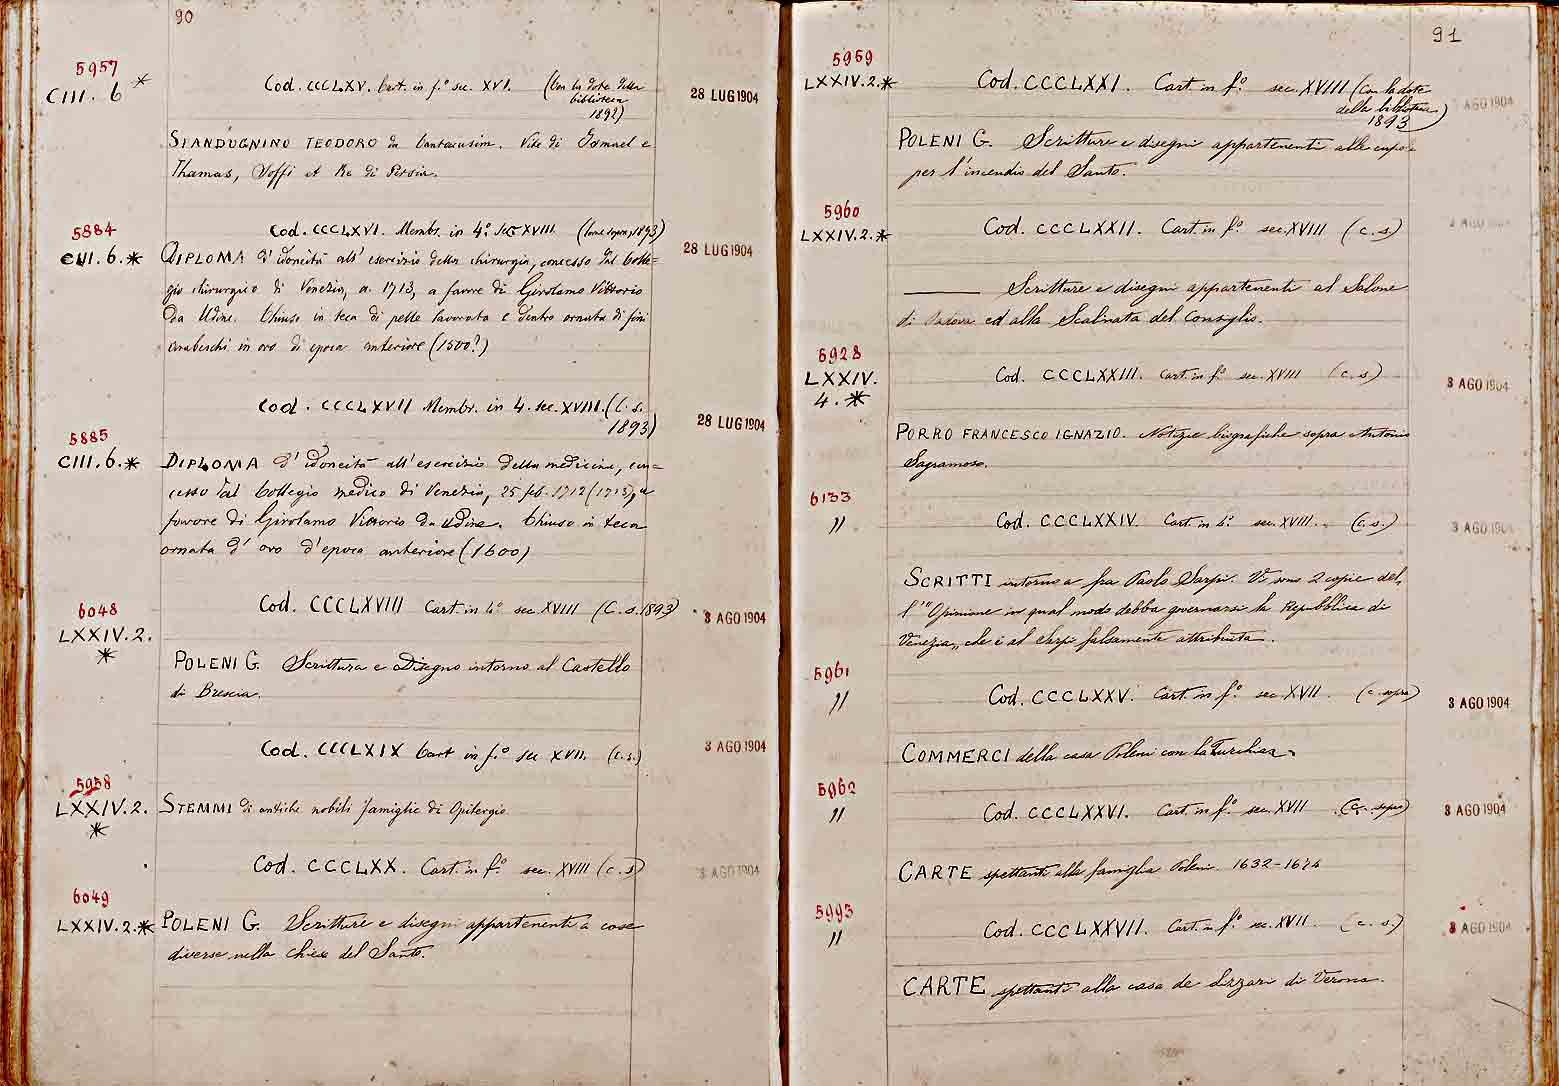 90
5957
CIII. 6 *
Cod. CCCLXV. Cart. in f.º sec. XVI. (Con la dote della
biblioteca
1892)
28 LUG 1904
SPANDUGNINO TEODORO da Cantacusim. Vite di Ismael e
Thamas, Soffi et Re di Persia.
5884
CIII. 6. *
Cod. CCCLXVI. Membr. in 4.º sec XVIII (come sopra, 1893)
28 LUG 1904
DIPLOMA d'idoneità all'esercizio della chirurgia, concesso dal Colle=
gio chirurgico di Venezia, a. 1713, a favore di Girolamo Vittorio
da Udine. Chiuso in teca di pelle lavorata e dentro ornata di fini
arabeschi in oro di epoca anteriore (1500?)
Cod. CCCLXVII Membr. in 4. sec. XVIII. (C. s.
1893)
28 LUG 1904
5885
CIII. 6. *
DIPLOMA d'idoneità all'esercizio della medicina, con=
cesso dal Collegio medico di Venezia, 25 feb. 1712 (1713), a
favore di Girolamo Vittorio da Udine. Chiuso in teca
ornata d'oro d'epoca anteriore (1600)
6048
LXXIV. 2.
*
Cod. CCCLXVIII Cart. in 4º sec XVIII (C. s. 1893)
3 AGO 1904
POLENI G. Scrittura e Disegno intorno al Castello
di Brescia.
Cod. CCCLXIX Cart in f.º sec XVII. (c. s.)
3 AGO 1904
5958
LXXIV. 2.
*
STEMMI di antiche nobili famiglie di Opitergio
Cod. CCCLXX. Cart. in f.º sec. XVIII (c. s)
3 AGO 1904
6049
LXXIV. 2. *
POLENI G. Scritture e disegni appartenenti a cose
diverse nella chiesa del Santo.
91
5959
LXXIV. 2. *
Cod. CCCLXXI. Cart. in f.º sec. XVIII (Con la dote
della biblioteca
1893)
AGO 1904
POLENI G. Scritture e disegni appartenenti alle cupole
per l'incendio del Santo.
5960
LXXIV. 2. *
Cod. CCCLXXII. Cart. in f.º sec. XVIII (c. s)
3 AGO 1904
——— Scritture e disegni appartenenti al Salone
di Padova ed alla Scalinata del Consiglio.
5928
LXXIV.
4. *
Cod. CCCLXXIII. Cart. in f.º sec. XVIII (c. s)
3 AGO 1904
PORRO FRANCESCO IGNAZIO. Notizie biografiche sopra Antonio
Sagramoso.
6133
"
Cod. CCCLXXIV. Cart. in 4.º sec. XVIII. (c. s.)
3 AGO 1904
SCRITTI intorno a fra Paolo Sarpi. Vi sono 2 copie del=
l'"Opinione in qual modo debba governarsi la Repubblica di
Venezia„ che è al Sarpi falsamente attribuita.
5961
"
Cod. CCCLXXV. Cart. in f.º sec XVII. (c. sopra)
3 AGO 1904
COMMERCI della casa Poleni con la Turchia.
5962
"
Cod. CCCLXXVI. Cart. in f.º sec. XVII (c. sopra)
3 AGO 1904
CARTE spettanti alla famiglia Poleni 1632-1674
5993
"
Cod. CCCLXXVII. Cart. in f.º sec. XVII. (c. s.)
3 AGO 1904
CARTE spettanti alla casa de Lizzari di Verona.